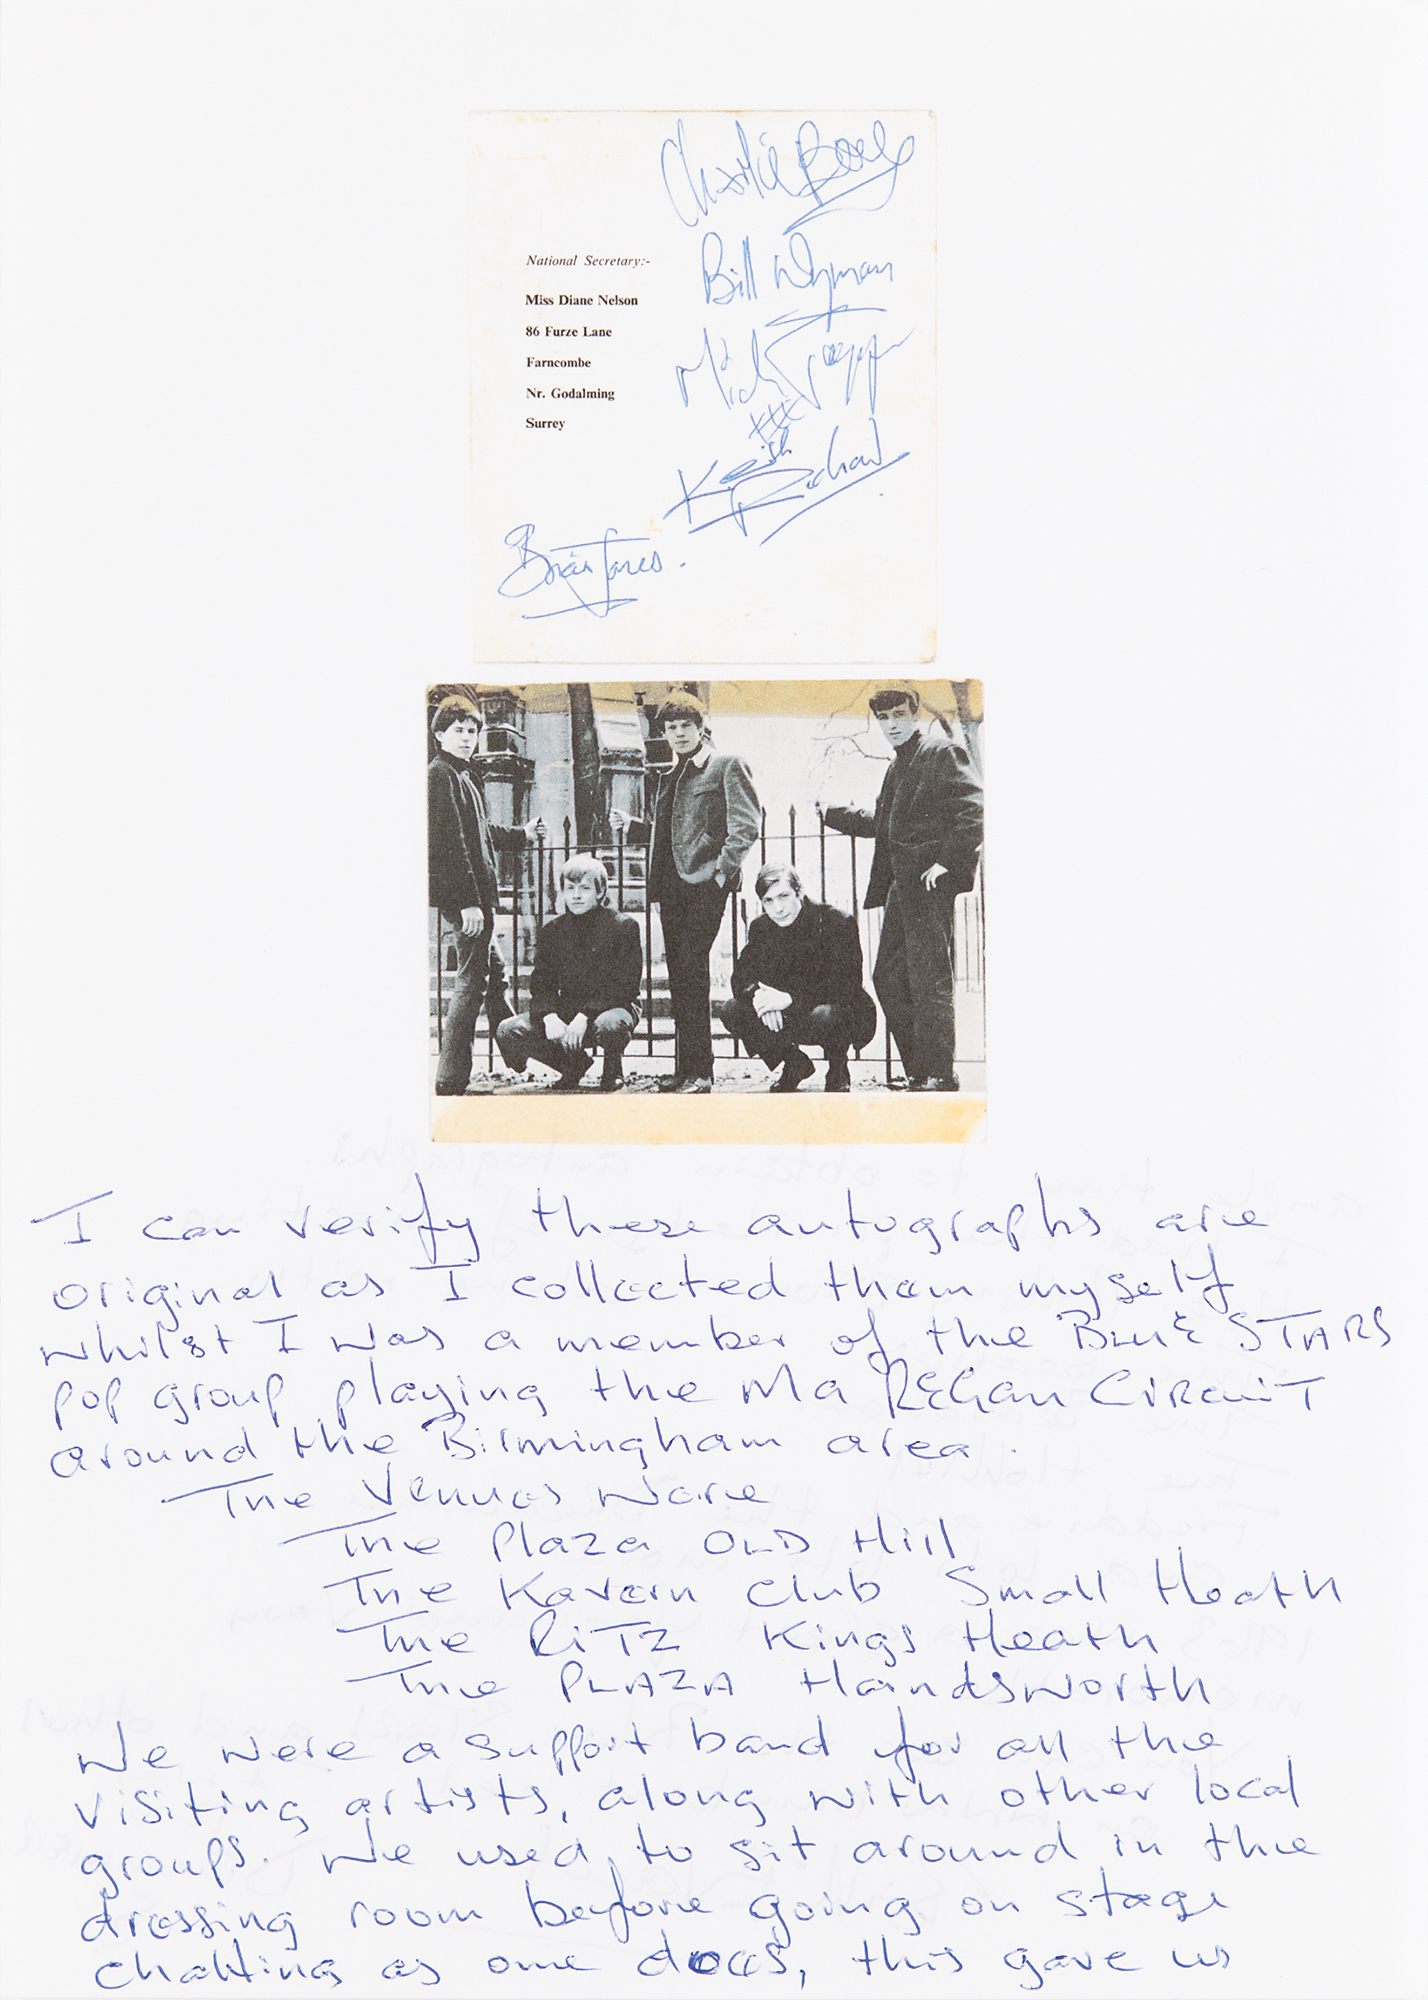 Charlie Boy
Bill Wyman
National Secretary:-
Miss Diane Nelson
Mick Jagger
86 Furze Lane
Farncombe
Nr. Godalming
xxx
Surrey
Keith Richard
Brian Jones.
I can verify these autographs are
original as I collected them myself
whilst I was a member of the BLUE STARS
pop group playing the Ma REGan CIRCuiT
around the Birmingham area.
The Vennas Ware
The Plaza OLD Hill
The Kavern Club Small Heath
The RiTZ Kings Heath
The PLAZA Handsworth
We were a support band for all the
visiting artists, along with other local
groups. We used to sit around in the
dressing room before going on stage
chatting as one does, this gave us